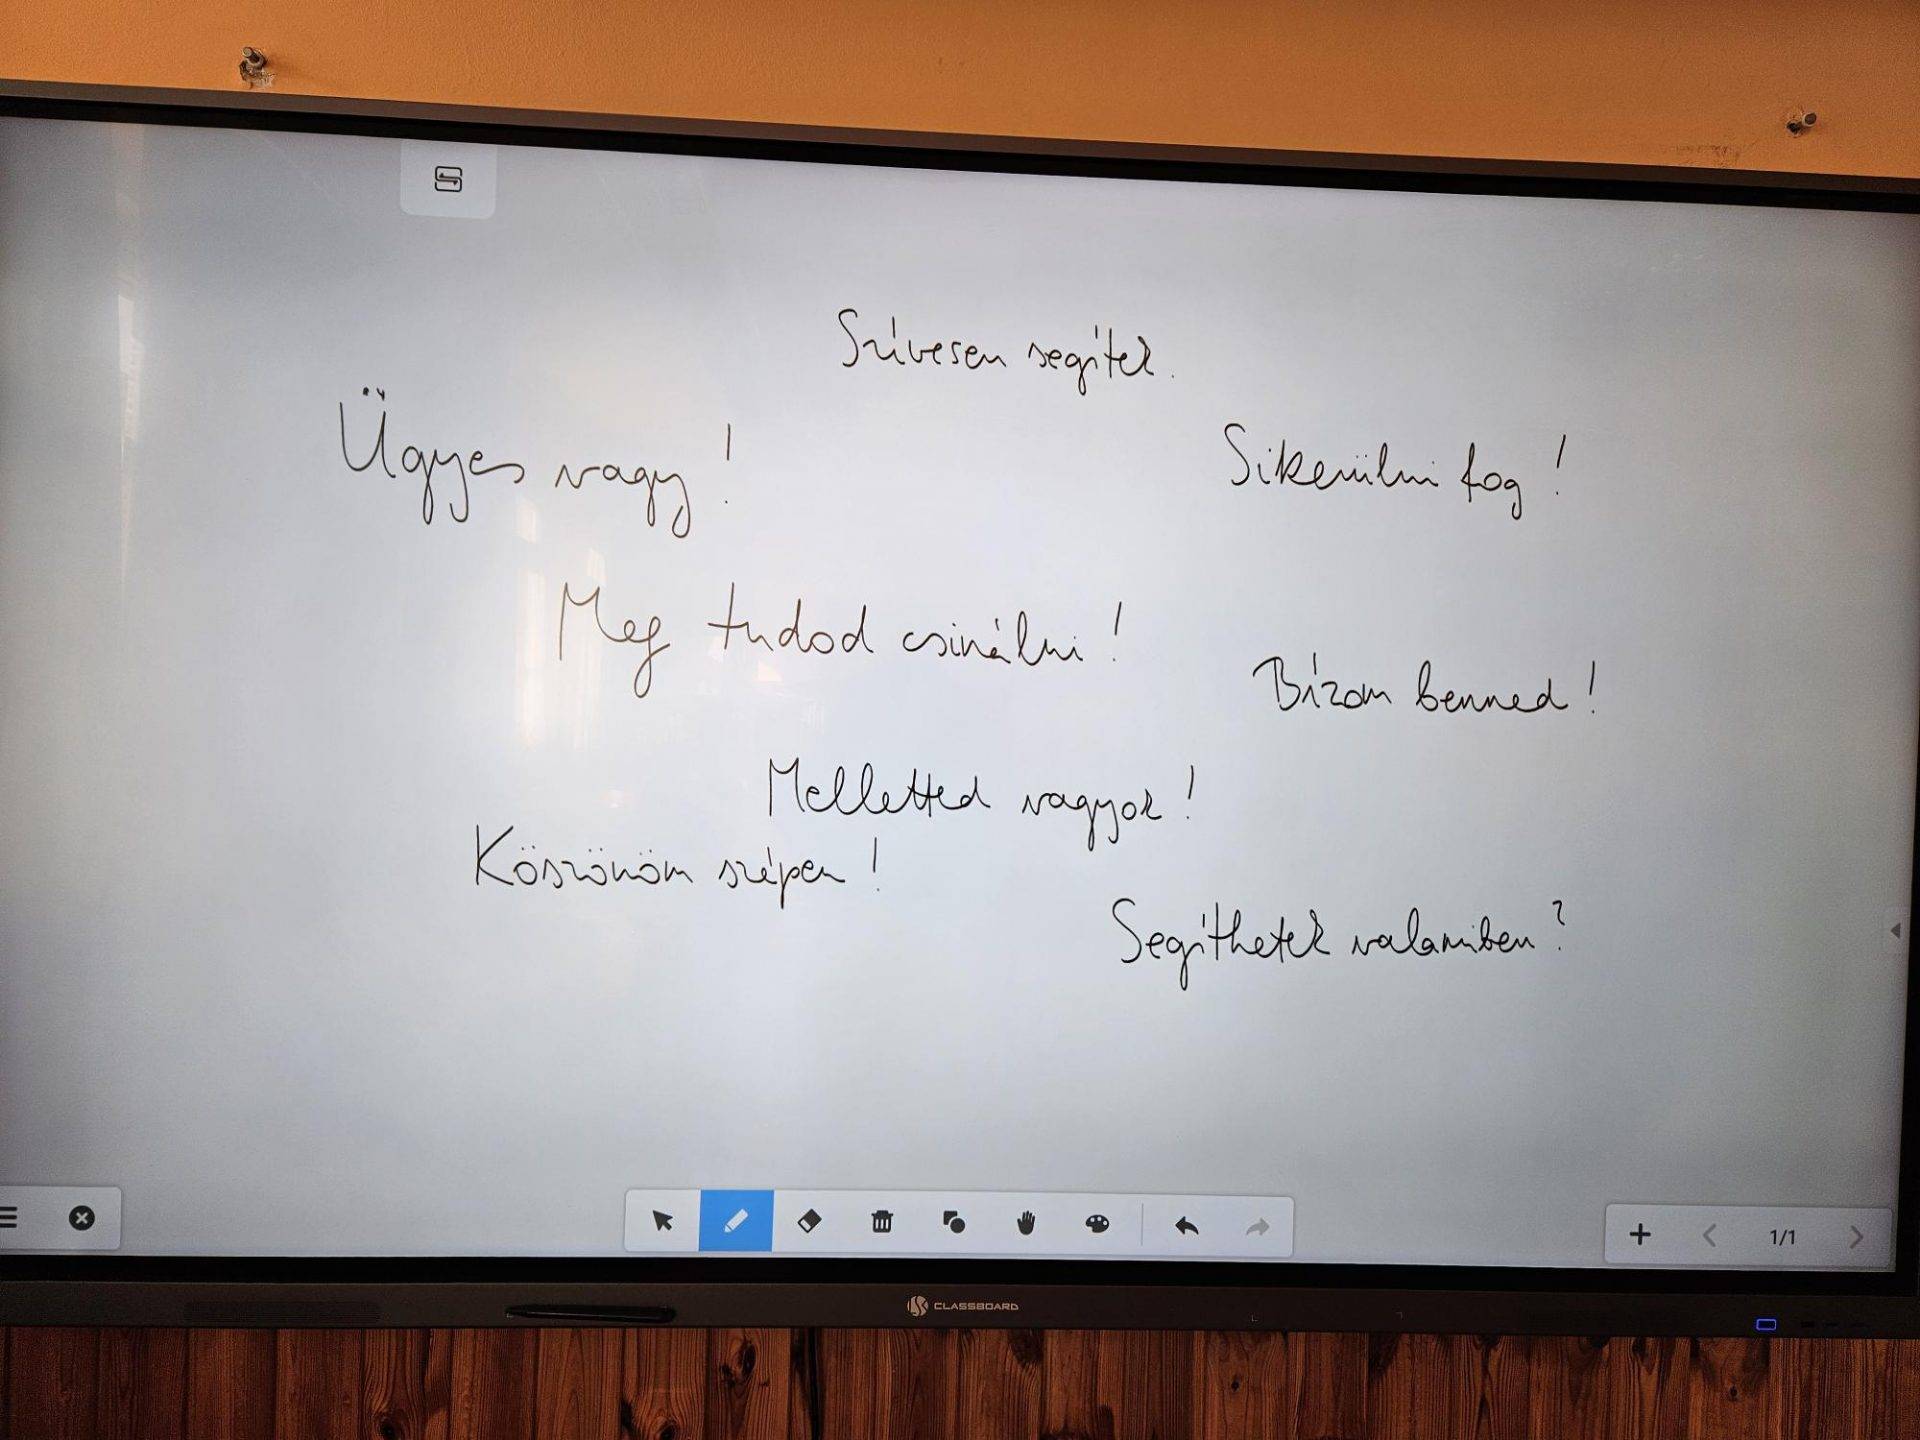 Szívesen segítek.
Ügyes vagy!
Sikerülni fog!
Meg tudod csinálni!
Bízom benned!
Melletted vagyok!
Köszönöm szépen!
Segíthetek valamiben?
1/1
CLASSBOARD